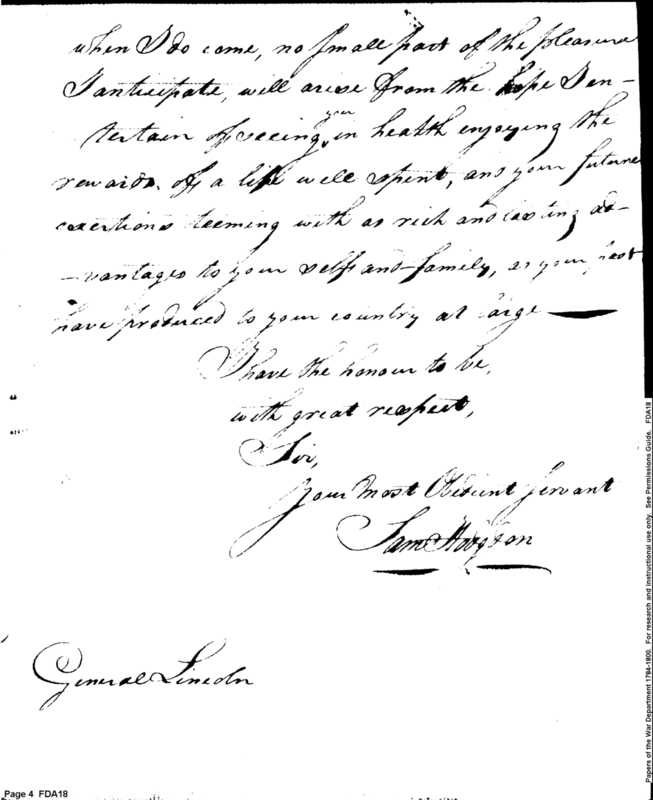 when I do come, no small part of the pleasure
I anticipate, will arise from the hope I en-
tertain of seeing you in health enjoying the
rewards of a life well spent, and your future
exertions teeming with as rich and lasting ad-
-vantages to your self and family, as your past
have produced to your country at large
I have the honour to be,
with great respect,
Sir,
Your Most Obedient Servant
Sam Hodgdon
General Lincoln
Page 4 FDA18
Papers of the War Department 1784-1800. For research and instructional use only. See Permissions Guide. FDA18